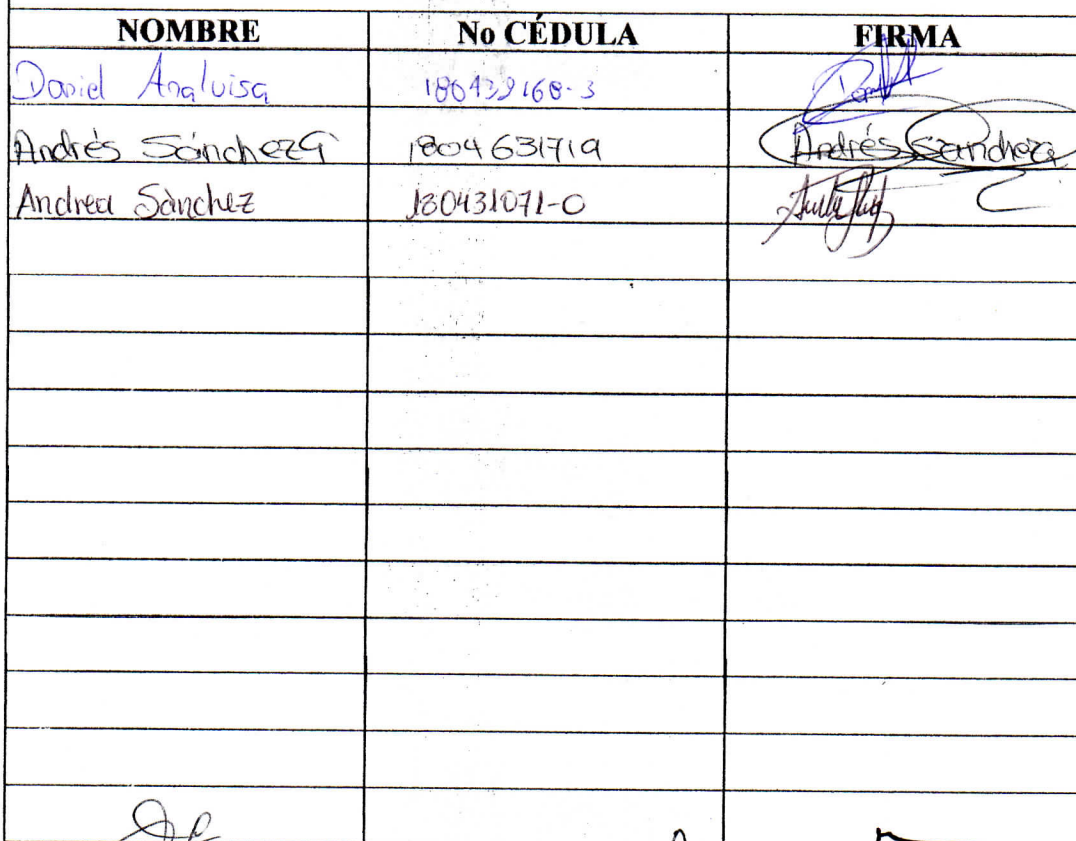 NOMBRE No CÉDULA FIRMA
Daniel Analuisa 180439168-3
Andrés Sánchez G 1804631719 Andrés Sánchez G
Andrea Sánchez 180431071-0